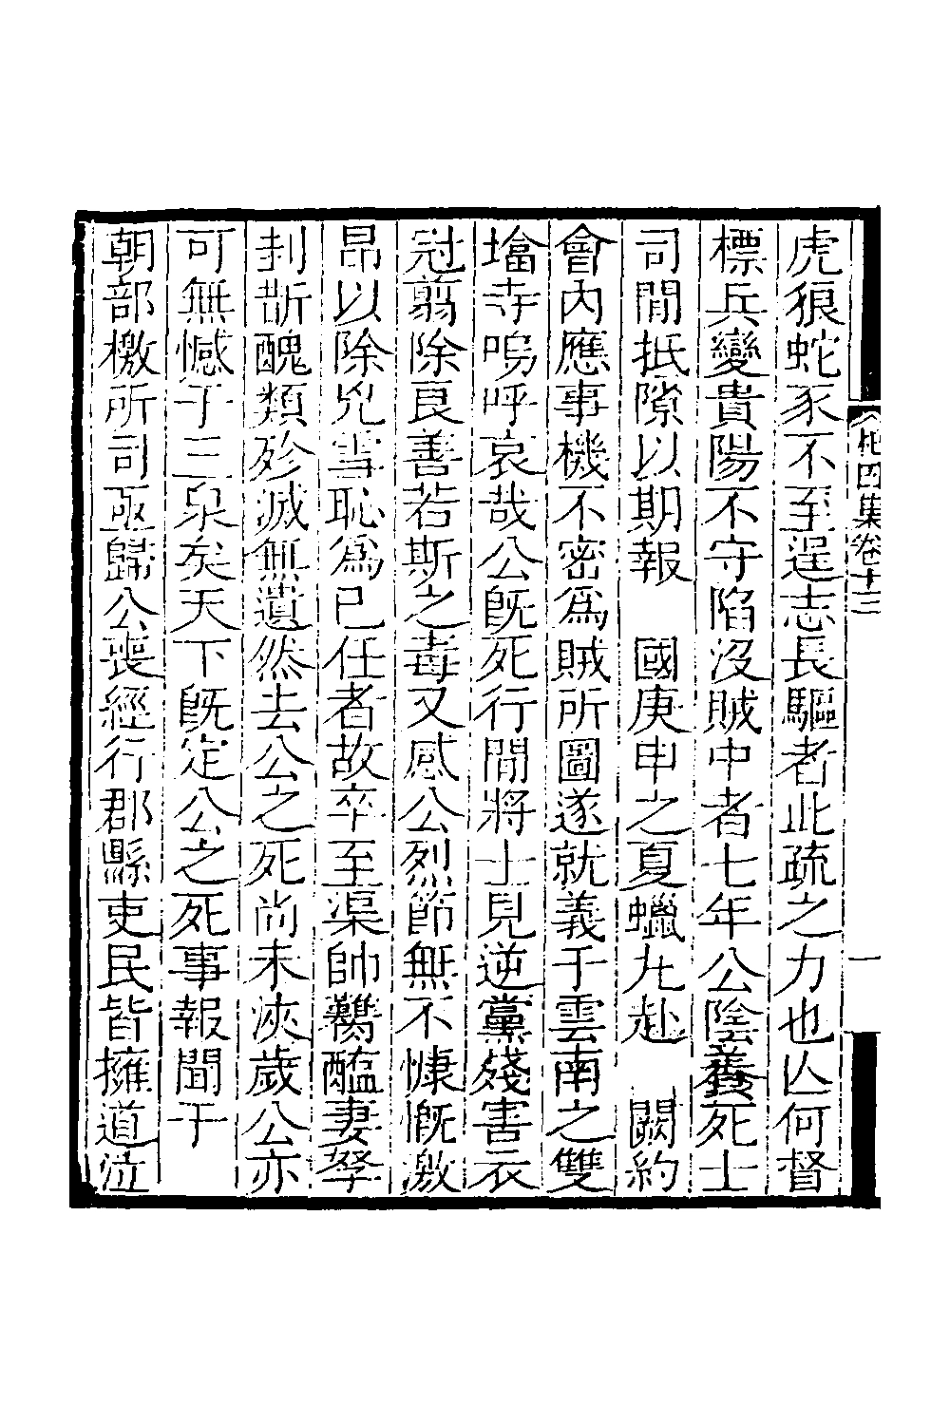 虎狼蛇豕不至逞志長驅者此疏之力也亾何督
標兵變貴陽不守陷沒賊中者七年公陰養死士
司閒抵隙以期報　國庚申之夏蠟丸赴　闕約
會內應事機不密為賊所圖遂就義于雲南之雙
壋寺嗚呼哀哉公旣死行閒將士見逆黨殘害衣
冠翦除良善若斯之毒又感公烈節無不慷慨激
昂以除兇雪恥爲已任者故卒至渠帥臠醢妻孥
剚斮醜類殄滅無遺然去公之死尚未浹歲公亦
可無憾于三泉矣天下旣定公之死事報聞于
朝部檄所司亟歸公喪經行郡縣吏民皆擁道泣
四集卷十三
一